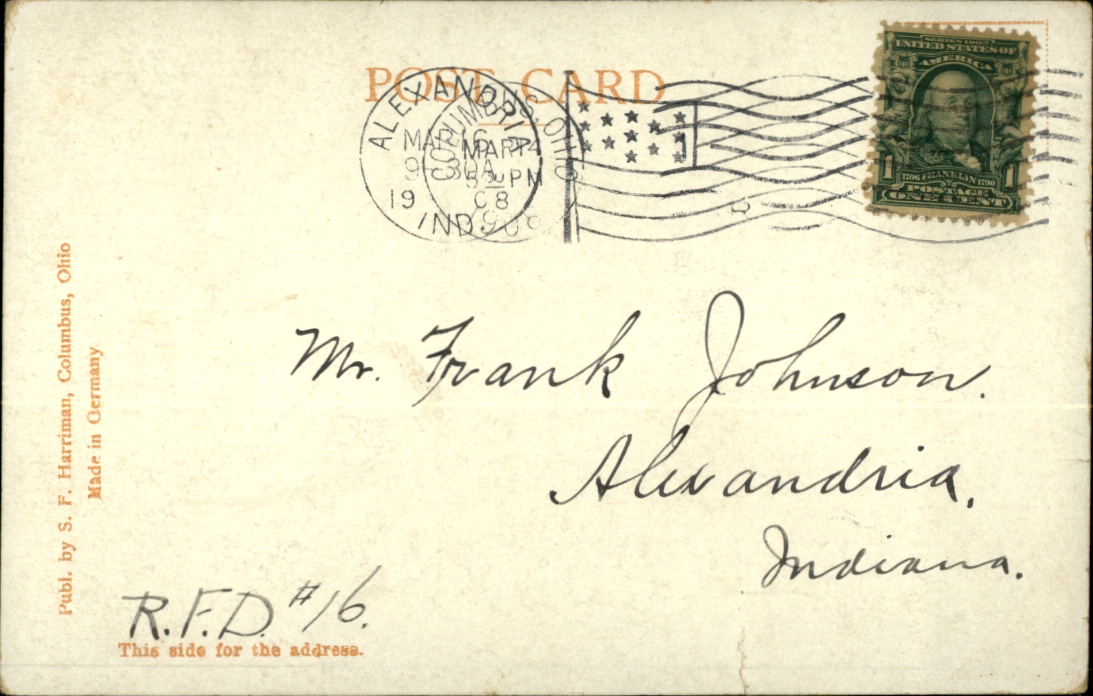 POST CARD
ALEXANDRIA
MAR 16
9-30A
19 08
IND
COLUMBUS, OHIO
MAR
5 30 PM
1908
SERIES 1902
UNITED STATES OF
AMERICA
1 1
1706 FRANKLIN 1790
POSTAGE
ONE CENT
Publ. by S. F. Harriman, Columbus, Ohio
Made in Germany
Mr. Frank Johnson.
Alexandria,
Indiana.
R.F.D. #16.
This side for the address.